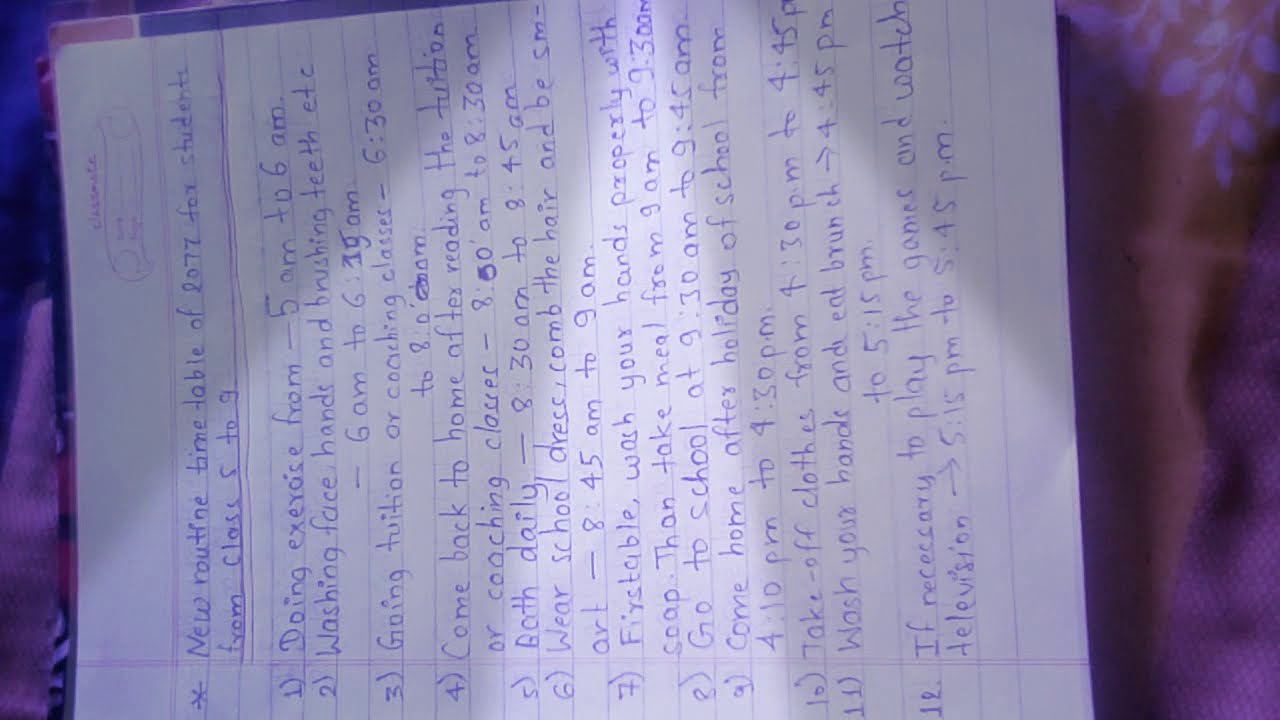 classmate
* New routine time-table of 2077 for student
from class 5 to 9
1) Doing exercise from - 5 am to 6 am.
2) Washing face, hands and brushing teeth etc
- 6 am to 6:15 am.
3) Going tuition or coaching classes - 6:30 am
to 8:0 am.
4) Come back to home after reading the tuition
or coaching classes - 8:00 am to 8:30 am
5) Bath daily - 8:30 am to 8:45 am
6) Wear school dress, comb the hair and be sm-
art - 8:45 am to 9 am.
7) Firstable, wash your hands properly with
soap. Than take meal from 9 am to 9:30am
8) Go to school at 9:30 am to 9:45 am
9) Come home after holiday of school from
4:10 pm to 4:30 p.m.
10) Take-off clothes from 4:30 p.m to 4:45 p
11) Wash your hands and eat brunch → 4:45 pm
to 5:15 pm.
12. If necessary to play the games and watch
television → 5:15 pm to 5:45 p.m.